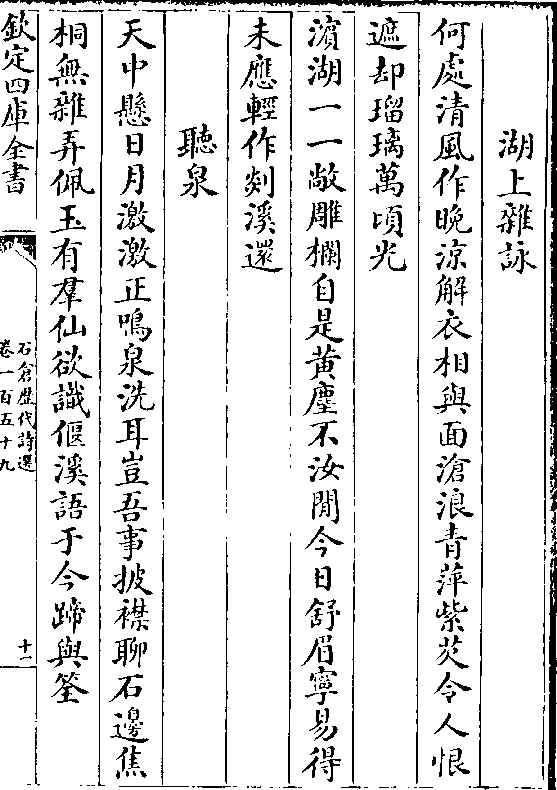 湖上雜詠
何處清風作晚涼解衣相與面滄浪青萍紫芡令人恨
遮却瑠璃萬頃光
濵湖一一敞雕欄自是黄塵不汝閒今日舒眉寧易得
未應輕作剡溪還
聽泉
天中懸日月激激正鳴泉洗耳豈吾事披襟聊石邊焦
桐無雜弄佩玉有羣仙欲識偃溪語于今蹄與筌
欽定四庫全書
石倉歴代詩選
卷一百五十九
十一